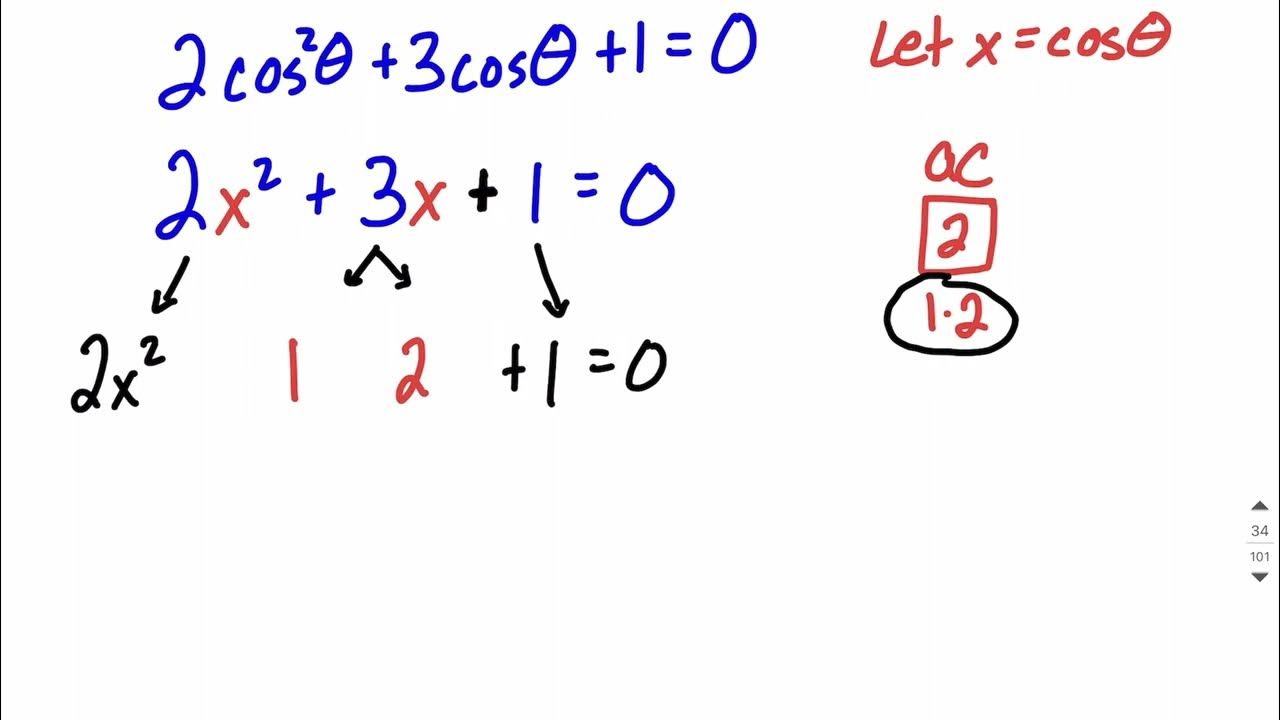 2cos²θ + 3cosθ + 1 = 0
Let x = cosθ
2x² + 3x + 1 = 0
ac
2
1·2
2x² 1 2 + 1 = 0
34
101